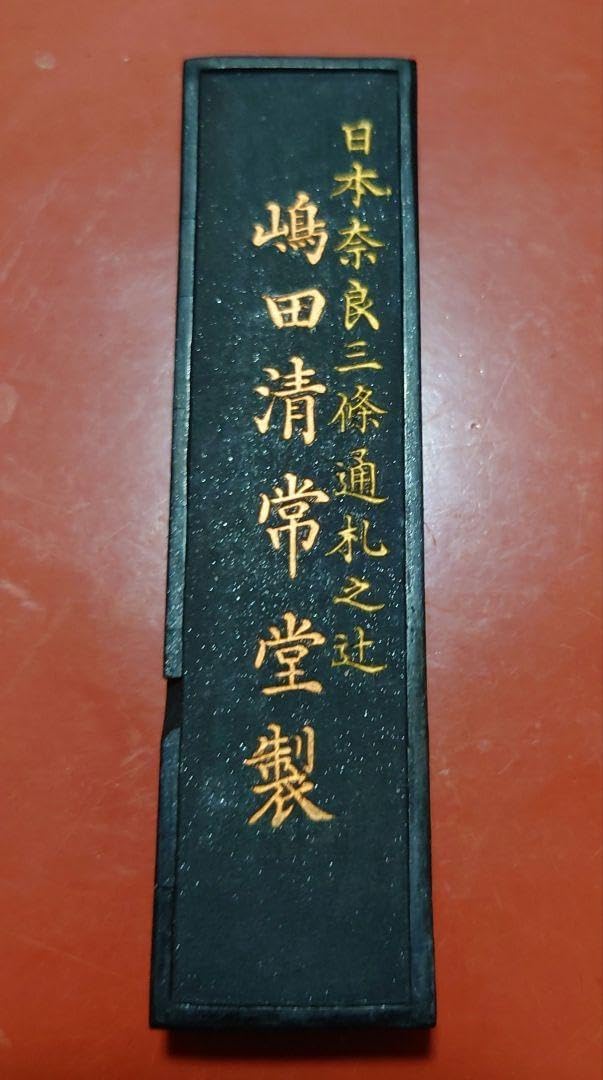 日本奈良三條通札之辻
嶋田清常堂製